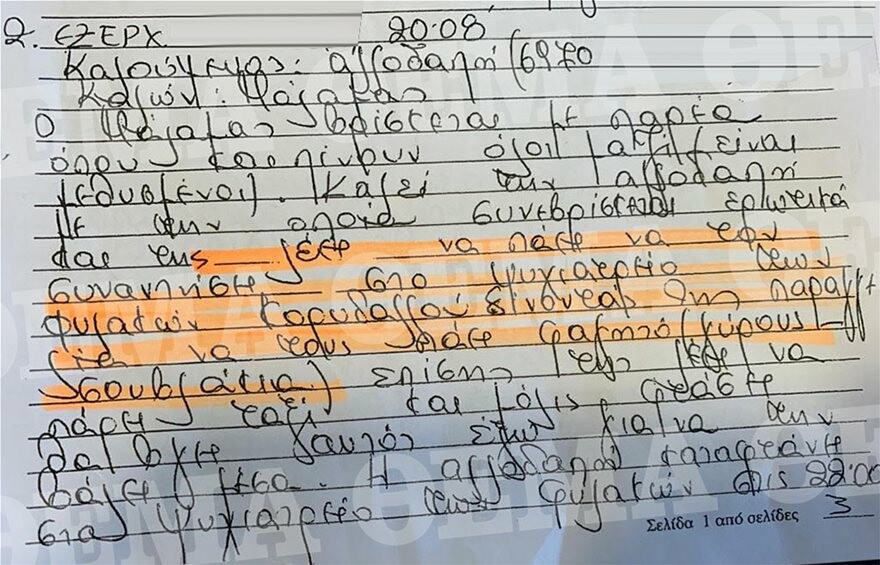 2. ΕΞΕΡΧ 20:08
Καλούμενος: αλλοδαπή (6970
Καλών:
Ο βρίσκεται με παρέα
όπου και πίνουν όλοι μαζί (είναι
μεθυσμένοι). Καλεί την αλλοδαπή
με την οποία συνευρίσκεται ερωτικά
και της λέει να πάει να τον
συναντήσει στο ψυχιατρείο των
φυλακών Κορυδαλλού δίνοντάς της παραγγε
λία να τους πάει φαγητό (γύρους –
σουβλάκια) επίσης της λέει να
πάρει ταξί και μόλις φτάσει
θα βγει έξω για να την
βάλει μέσα. Η αλλοδαπή καταφτάνει
στο ψυχιατρείο των φυλακών στις 22:00
Σελίδα 1 από σελίδες 3
ΘΕΜΑ